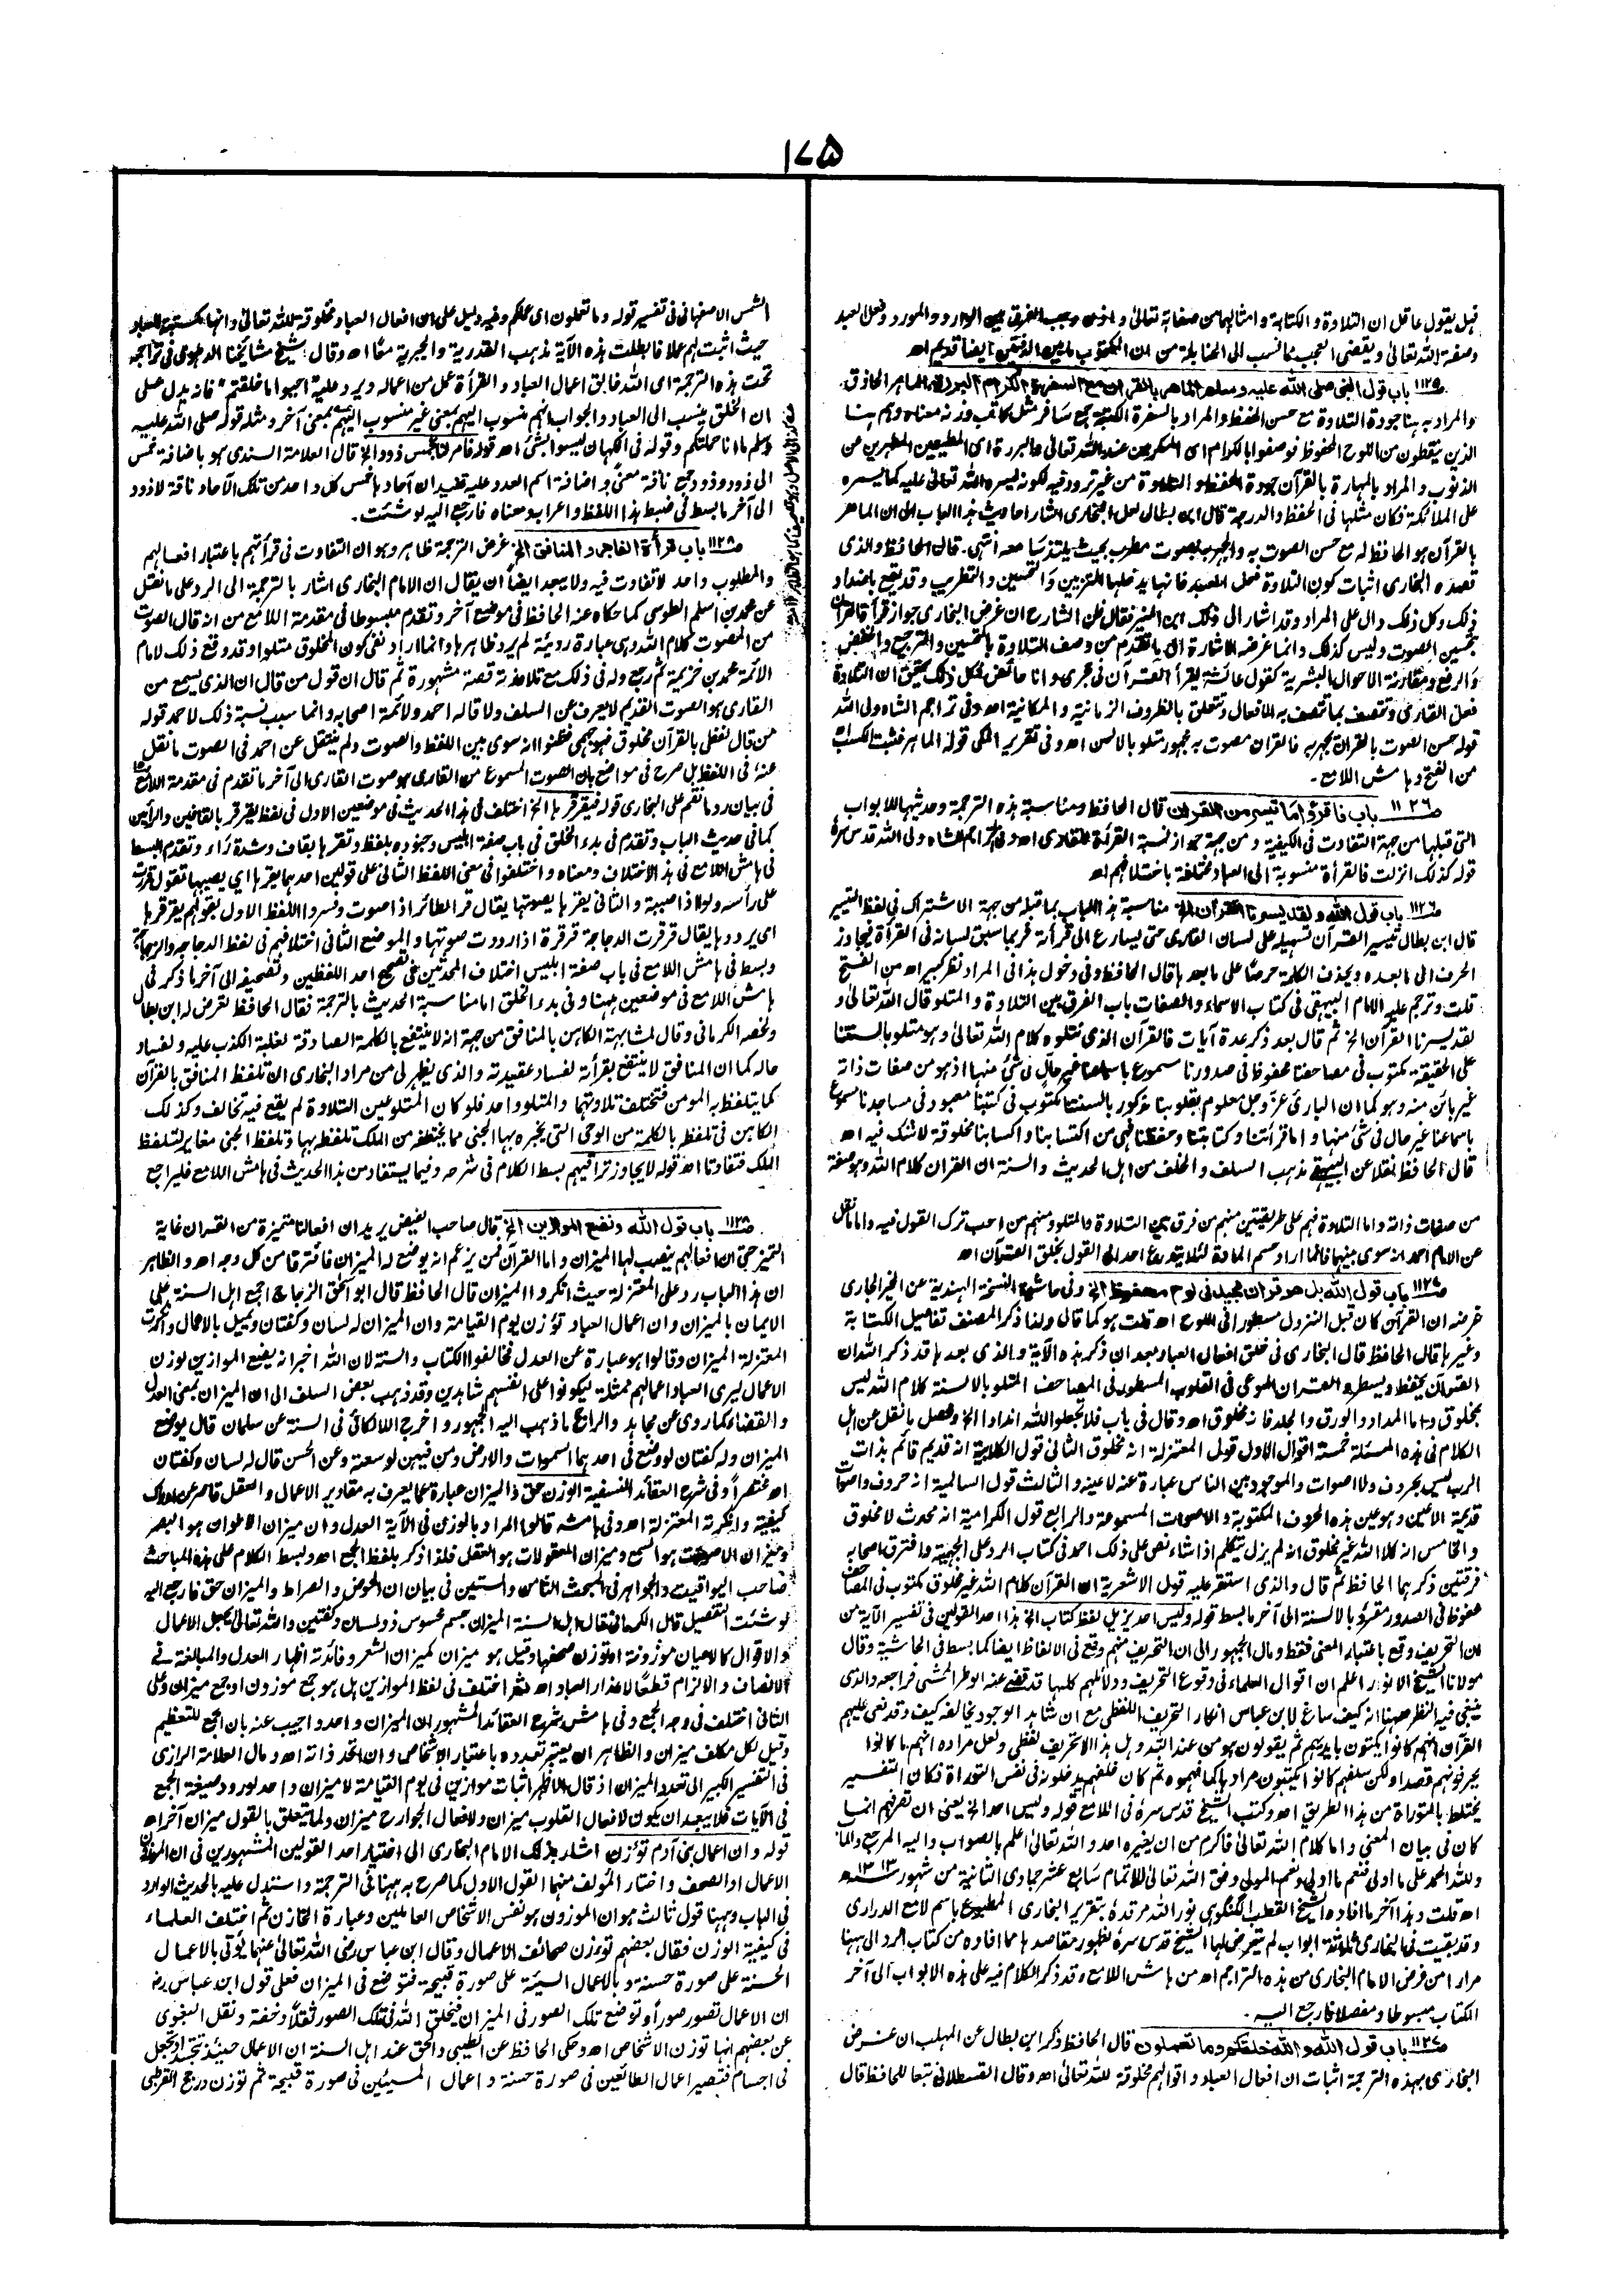 ١٧٥
قبل يقول عاقل ان التلاوة والكتابة وامثالهما من صفاته تعالى وايضا يجب الفرق بين الوارد والمورد وفعل العبد
وصفة الله تعالى ويقتضى العجب مما نسب الى الحنابلة من ان المكتوب ما بين الدفتين ايضا قديم اھ
١١٢٥ باب قول النبى صلى الله عليه وسلم الماهر بالقرآن مع السفرة الكرام البررة الماهر الحاذق
والمراد به ههنا جودة التلاوة مع حسن الحفظ والمراد بالسفرة الكتبة جمع سافر مثل كاتب وزنه ومعناه وهم ههنا
الذين ينقطون من اللوح المحفوظ فوصفوا بالكرام اى المكرمين عند الله تعالى والبررة اى المطيعين المطهرين من
الذنوب والمراد بالمهارة بالقرآن جودة الحفظ والتلاوة من غير تردد فيه لكونه يسره الله تعالى عليه كما يسره
على الملائكة فكان مثلها فى الحفظ والدرجة قال ابن بطال لعل البخارى اشار باحاديث هذا الباب الى ان الماهر
بالقرآن هو الحافظ له مع حسن الصوت به والجهر به بصوت مطرب بحيث يلتذ سامعه انتهى. قال الحافظ والذى
قصده البخارى اثبات كون التلاوة فعل العبد فانها يدخلها التزيين والتحسين والتطريب وقد يقع باضداد
ذلك وكل ذلك دال على المراد وقد اشار الى ذلك ابن المنير فقال ظن الشارح ان غرض البخارى جواز قرأة القرآن
بتحسين الصوت وليس كذلك وانما غرضه الاشارة الى ما تقدم من وصف التلاوة بالتحسين والترجيع والخفض
والرفع ومقارنة الاحوال البشرية كقول عائشة يقرأ القرآن فى حجرى وانا حائض فكل ذلك يحقق ان التلاوة
فعل القارى وتتصف بما تتصف به الافعال وتتعلق بالظروف الزمانية والمكانية اھ وفى تراجم الشاه ولى الله
قوله حسن الصوت بالقرآن يجهر به فالقرآن مصوت به مجهور متلو بالالسن اھ وفى تقرير المكى قوله الماهر فثبت الكسب اھ
من الفتح وهامش اللامع۔
١١٢٦ باب فاقرؤا ما تيسر من القرآن قال الحافظ ومناسبة هذه الترجمة وحديثها للابواب
التى قبلها من جهة التفاوت فى الكيفية ومن جهة جواز نسبة القرأة للقارى اھ وفى تراجم الشاه ولى الله قدس سره
قوله كذلك انزلت فالقرأة منسوبة الى العباد مختلفة باختلافهم اھ
١١٢٦ باب قول الله ولقد يسرنا القرآن الخ مناسبة هذا الباب بما قبله من جهة الاشتراك فى لفظ التيسير
قال ابن بطال تيسير القرآن تسهيله على لسان القارى حتى يسارع الى قرأته فربما سبق لسانه فى القرأة فيجاوز
الحرف الى ما بعده ويحذف الكلمة حرصا على ما بعدها قال الحافظ وفى دخول هذا فى المراد نظر كبير اھ من الفتح
قلت وترجم عليه الامام البيهقى فى كتاب الاسماء والصفات باب الفرق بين التلاوة والمتلو قال الله تعالى و
لقد يسرنا القرآن الخ ثم قال بعد ذكر عدة آيات فالقرآن الذى نتلوه كلام الله تعالى وهو متلو بالسنتنا
على الحقيقة مكتوب فى مصاحفنا محفوظ فى صدورنا مسموع باسماعنا غير حال فى شئ منها اذ هو من صفات ذاته
غير بائن منه وهو كما ان البارى عز وجل معلوم بقلوبنا مذكور بالسنتنا مكتوب فى كتبنا معبود فى مساجدنا مسموع
باسماعنا غير حال فى شئ منها واما قرأتنا وكتابتنا وحفظنا فهى من اكتسابنا واكسابنا مخلوقة لا شك فيه اھ
قال الحافظ نقلا عن البيهقى مذهب السلف والخلف من اهل الحديث والسنة ان القرآن كلام الله وهو صفة
من صفات ذاته واما التلاوة فهم على طريقتين منهم من فرق بين التلاوة والمتلو ومنهم من احب ترك القول فيه واما ما نقل
عن الامام احمد انه سوى بينهما فانما اراد حسم المادة لئلا يتدرع احد الى القول بخلق القرآن اھ
١١٢٧ باب قول الله بل هو قرآن مجيد فى لوح محفوظ الخ وفى هامش النسخة الهندية عن الخير الجارى
غرضه ان القرآن كان قبل النزول مسطورا فى اللوح اھ قلت هو كما قال ولذا ذكر المصنف تفاصيل الكتابة
وغيرها قال الحافظ قال البخارى فى خلق افعال العباد بعد ان ذكر هذه الآية والذى بعدها قد ذكر الله ان
القرآن يحفظ ويسطر والقرآن الموعى فى القلوب المسطور فى المصاحف المتلو بالالسنة كلام الله ليس
بمخلوق واما المداد والورق والجلد فانه مخلوق اھ وقال فى باب فلا تجعلوا الله اندادا الخ وحصل ما نقل عن اهل
الكلام فى هذه المسئلة خمسة اقوال الاول قول المعتزلة انه مخلوق الثانى قول الكلابية انه قديم قائم بذات
الرب ليس بحروف ولا اصوات والموجود بين الناس عبارة عنه لا عينه والثالث قول السالمية انه حروف واصوات
قديمة الاعين وهو عين هذه الحروف المكتوبة والاصوات المسموعة والرابع قول الكرامية انه محدث لا مخلوق
والخامس انه كلام الله غير مخلوق انه لم يزل يتكلم اذا شاء نص على ذلك احمد فى كتاب الرد على الجهمية وافترق اصحابه
فرقتين ذكرهما الحافظ ثم قال والذى استقر عليه قول الاشعرية ان القرآن كلام الله غير مخلوق مكتوب فى المصاحف
محفوظ فى الصدور مقروء بالالسنة الى آخر ما بسط قوله وليس احد يزيل لفظ كتاب الخ هذا احد القولين فى تفسير الآية من
ان التحريف وقع باعتبار المعنى فقط ومال الجمهور الى ان التحريف منهم وقع فى الالفاظ ايضا كما بسط فى الحاشية وقال
مولانا الشيخ الانور اعلم ان اقوال العلماء فى وقوع التحريف ودلائلهم كلها قد قضى عنه الوطر المحشى فراجعه والذى
ينبغى فيه النظر ههنا انه كيف ساغ لابن عباس انكار التحريف اللفظى مع ان شاهد الوجود يخالفه كيف وقد نعى عليهم
القرآن انهم كانوا يكتبون بايديهم ثم يقولون هو من عند الله وهل هذا الا تحريف لفظى ولعل مراده انهم ما كانوا
يحرفونهم قصدا ولكن سلفهم كانوا يكتبون مرادها كما فهموه ثم كان خلفهم يدخلونه فى نفس التوراة فكان التفسير
يختلط بالتوراة من هذا الطريق اھ وكتب الشيخ قدس سره فى اللامع قوله وليس احد الخ يعنى ان تحريفهم انما
كان فى بيان المعنى واما كلام الله تعالى فاكرم من ان يغيره احد والله تعالى اعلم بالصواب واليه المرجع والمآب
ولله الحمد على ما اولى فنعم ما اولى ونعم المولى وفق الله تعالى للاتمام سابع عشر جمادى الثانية من شهور ١٣١٣ھ
اھ قلت وهذا آخر ما افاده الشيخ القطب الگنگوهى نور الله مرقده بتقرير البخارى المطبوع باسم لامع الدرارى
وقد بقيت فى البخارى ثلاثة ابواب لم يتعرض لها الشيخ قدس سره لظهور مقاصدها مما افاده من كتاب الرد الى ههنا
مرارا من غرض الامام البخارى من هذه التراجم اھ من هامش اللامع وقد ذكر الكلام فيه على هذه الابواب الى آخر
الكتاب مبسوطا ومفصلا فارجع اليه۔
١١٢٧ باب قول الله والله خلقكم وما تعملون قال الحافظ ذكر ابن بطال عن المهلب ان غرض
البخارى بهذه الترجمة اثبات ان افعال العباد واقوالهم مخلوقة لله تعالى اھ وقال القسطلانى تبعا للحافظ قال
الشمس الاصفهانى فى تفسير قوله وما تعملون اى عملكم وفيه دليل على ان افعال العباد مخلوقة لله تعالى وانها مكتسبة للعباد
حيث اثبت لهم عملا فابطلت هذه الآية مذهب القدرية والجبرية معا اھ وقال شيخ مشايخنا الدهلوى فى تراجمه
تحت هذه الترجمة اى الله خالق اعمال العباد والقرأة عمل من اعماله ويرد عليه احيوا ما خلقتم فانه يدل على
ان الخلق ينسب الى العباد والجواب انهم منسوب اليهم بمعنى غير منسوب اليهم بمعنى آخر ومثله قوله صلى الله عليه
وسلم ما انا حملتكم وقوله فى الكهان ليسوا بشئ اھ قوله فامر لنا بخمس ذود الخ قال العلامة السندى هو باضافة خمس
الى ذود وذود جمع ناقة معنى واضافة اسم العدد عليه تفيد ان آحادها خمس كل واحد من تلك الآحاد ناقة لا ذود
الى آخر ما بسط فى ضبط هذا اللفظ واعرابه ومعناه فارجع اليه لو شئت۔
١١٢٨ باب قرأة الفاجر والمنافق الخ غرض الترجمة ظاهر وهو ان التفاوت فى قرأتهم باعتبار افعالهم
والمطلوب واحد لا تفاوت فيه ولا يبعد ايضا ان يقال ان الامام البخارى اشار بالترجمة الى الرد على ما نقل
عن محمد بن اسلم الطوسى كما حكاه عنه الحافظ فى موضع آخر وتقدم مبسوطا فى مقدمة اللامع من انه قال الصوت
من المصوت كلام الله وهى عبارة رديئة لم يرد ظاهرها وانما اراد نفى كون المخلوق متلوا وقد وقع ذلك لامام
الائمة محمد بن خزيمة ثم رجع وله فى ذلك مع تلامذته قصة مشهورة ثم قال ان قول من قال ان الذى يسمع من
القارى هو الصوت القديم لا يعرف عن السلف ولا قاله احمد ولا ائمة اصحابه وانما سبب نسبة ذلك لاحمد قوله
من قال لفظى بالقرآن مخلوق فهو جهمى فظنوا انه سوى بين اللفظ والصوت ولم ينقل عن احمد فى الصوت ما نقل
عنه فى اللفظ بل صرح فى مواضع بان الصوت المسموع من القارى هو صوت القارى الى آخر ما تقدم فى مقدمة اللامع
فى بيان رد ما نقم على البخارى قوله فيقرقرها الخ اختلف فى هذا الحديث فى موضعين الاول فى لفظ يقرقر بالقافين والرائين
كما فى حديث الباب وتقدم فى بدء الخلق فى باب صفة ابليس وجنوده بلفظ وتقرها بقاف وشدة راء وتقدم البسط
فى هامش اللامع فى هذا الاختلاف ومعناه واختلفوا فى معنى اللفظ الثانى على قولين احدهما يقرها اى يصبها تقول قررت
على رأسه دلوا اذا صببته والثانى يقرها يصوتها يقال قر الطائر اذا صوت وفسروا اللفظ الاول بقولهم يقرقرها
اى يرددها يقال قرقرت الدجاجة قرقرة اذا رددت صوتها والموضع الثانى اختلافهم فى لفظ الدجاجة والزجاجة
وبسط فى هامش اللامع فى باب صفة ابليس اختلاف المحدثين فى تصحيح احد اللفظين وتصحيفه الى آخر ما ذكر فى
هامش اللامع فى موضعين ههنا وفى بدء الخلق اما مناسبة الحديث بالترجمة فقال الحافظ تعرض له ابن بطال
ولخصه الكرمانى وقال لمشابهة الكاهن بالمنافق من جهة انه لا ينتفع بالكلمة الصادقة لغلبة الكذب عليه ولفساد
حاله كما ان المنافق لا ينتفع بقرأته لفساد عقيدته والذى يظهر لى من مراد البخارى ان تلفظ المنافق بالقرآن
كما يتلفظ به المومن فتختلف تلاوتهما والمتلو واحد فلو كان المتلو عين التلاوة لم يقع فيه تخالف وكذلك
الكاهن فى تلفظه بالكلمة من الوحى التى يخبره بها الجنى مما يختطفه من الملك تلفظه بها وتلفظ الجنى مغاير لتلفظ
الملك فتفاوتا اھ قوله لا يجاوز تراقيهم بسط الكلام فى شرحه وفيما يستفاد من هذا الحديث فى هامش اللامع فليراجع
١١٢٨ باب قول الله ونضع الموازين الخ قال صاحب الفيض يريد ان افعالنا متميزة من القرآن غاية
التميز حتى ان افعالهم ينصب لها الميزان واما القرآن فمن يزعم انه يوضع له الميزان فافترقا من كل وجه اھ والظاهر
ان هذا الباب رد على المعتزلة حيث انكروا الميزان قال الحافظ قال ابو اسحٰق الزجاج اجمع اهل السنة على
الايمان بالميزان وان اعمال العباد توزن يوم القيامة وان الميزان له لسان وكفتان ويميل بالاعمال وانكرت
المعتزلة الميزان وقالوا هو عبارة عن العدل فخالفوا الكتاب والسنة لان الله اخبر انه يضع الموازين لوزن
الاعمال ليرى العباد اعمالهم ممثلة ليكونوا على انفسهم شاهدين وقد ذهب بعض السلف الى ان الميزان بمعنى العدل
والقضاء كما روى عن مجاهد والراجح ما ذهب اليه الجمهور واخرج اللالكائى فى السنة عن سلمان قال يوضع
الميزان وله كفتان لو وضع فى احدهما السموات والارض ومن فيهن لوسعته وعن الحسن قال له لسان وكفتان
اھ مختصرا وفى شرح العقائد النسفية الوزن حق والميزان عبارة عما يعرف به مقادير الاعمال والعقل قاصر عن ادراك
كيفيته وانكرته المعتزلة اھ وفى هامشه قالوا المراد بالوزن فى الآية العدل وان ميزان الالوان هو البصر
وميزان الاصوات هو السمع وميزان المعقولات هو العقل فلذا ذكر بلفظ الجمع اھ وبسط الكلام على هذه المباحث
صاحب اليواقيت والجواهر فى المبحث الثامن والستين فى بيان ان الحوض والصراط والميزان حق فارجع اليه
لو شئت التفصيل قال الكرمانى فقال اهل السنة الميزان جسم محسوس ذو لسان وكفتين والله تعالى يجعل الاعمال
والاقوال كالاعيان موزونة او توزن صحفها وقيل هو ميزان كميزان الشعر وفائدته اظهار العدل والمبالغة فى
الانصاف والالزام قطعا لاعذار العباد اھ ثم اختلف فى لفظ الموازين هل هو جمع موزون او جمع ميزان وعلى
الثانى اختلف فى وجه الجمع وفى هامش شرح العقائد المشهور ان الميزان واحد واجيب عنه بان الجمع للتعظيم
وقيل لكل مكلف ميزان والظاهر ان يعتبر تعدده باعتبار الاشخاص وان اتحد ذاته اھ ومال العلامة الرازى
فى التفسير الكبير الى تعدد الميزان اذ قال الاظهر اثبات موازين فى يوم القيامة لا ميزان واحد لورود صيغة الجمع
فى الآيات فلا يبعد ان يكون لافعال القلوب ميزان ولافعال الجوارح ميزان ولما يتعلق بالقول ميزان آخر اھ
قوله وان اعمال بنى آدم توزن اشار بذلك الامام البخارى الى اختيار احد القولين المشهورين فى ان الموزون
الاعمال او الصحف واختار المؤلف منهما القول الاول كما صرح به ههنا فى الترجمة واستدل عليه بالحديث الوارد
فى الباب وههنا قول ثالث هو ان الموزون هو نفس الاشخاص العاملين وعبارة الخازن ثم اختلف العلماء
فى كيفية الوزن فقال بعضهم توزن صحائف الاعمال وقال ابن عباس رضى الله تعالى عنهما يؤتى بالاعمال
الحسنة على صورة حسنة وبالاعمال السيئة على صورة قبيحة فتوضع فى الميزان فعلى قول ابن عباس رض
ان الاعمال تصور صورا وتوضع تلك الصور فى الميزان فيخلق الله فى تلك الصور ثقلا وخفة ونقل البغوى
عن بعضهم انها توزن الاشخاص اھ وحكى الحافظ عن الطيبى والحق عند اهل السنة ان الاعمال حينئذ تتجسد او تجعل
فى اجسام فتصير اعمال الطائعين فى صورة حسنة واعمال المسيئين فى صورة قبيحة ثم توزن ورجح القرطبى